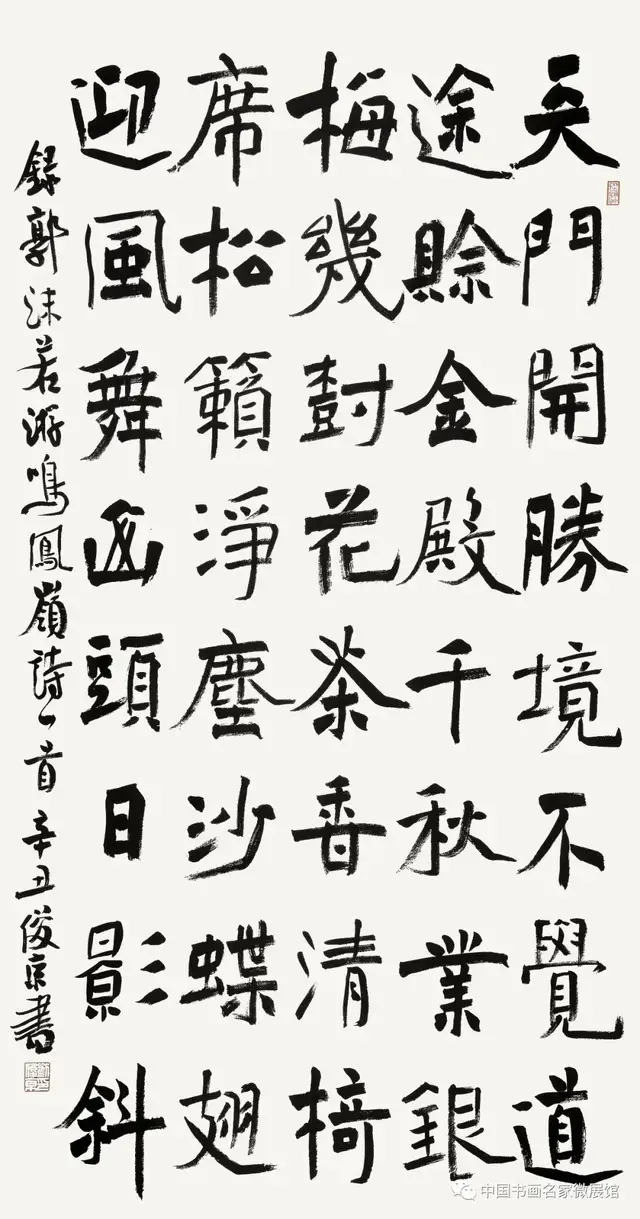 天門開勝境不覺道
途賒金殿千秋業銀
梅幾尌花茶香清椅
席松籟淨塵沙蝶翅
迎風舞山頭日影斜
錄郭沫若游鳴鳳嶺詩一首辛丑俊京書
中国书画名家微展馆